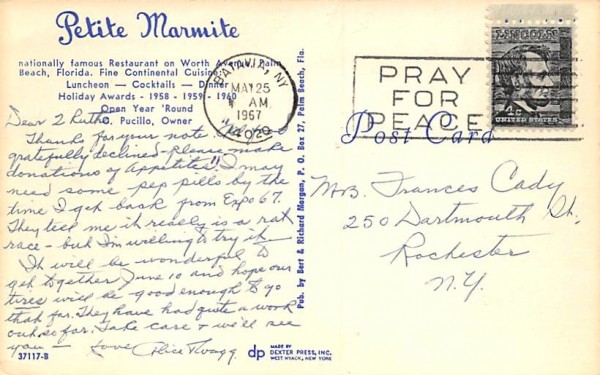 Petite Marmite
nationally famous Restaurant on Worth Avenue, Palm
Beach, Florida. Fine Continental Cuisine.
Luncheon — Cocktails — Dinner
Holiday Awards - 1958 - 1959 - 1960
Open Year 'Round
C. Pucillo, Owner
Dear
Thanks for your note
gratefully declined. Please make
donations of Appetites". I may
need some pep pills by the
time I get back from Expo 67.
They tell me it really is a rat
race - but I'm willing to try it.
It will be wonderful to
get together June 10 and hope our
tires will be good enough to go
that far. They have had quite a work
out so far. Take care & we'll see
you - Love, Alice
37117-B
Pub. by Bert & Richard Morgan, P. O. Box 27, Palm Beach, Fla.
dp MADE BY
DEXTER PRESS, INC.
WEST NYACK, NEW YORK
BATAVIA, NY
MAY 25
AM
1967
14020
PRAY
FOR
PEACE
LINCOLN
4c
UNITED STATES
Post Card
Mrs. Frances Cady
250 Dartmouth St.
Rochester
N.Y.